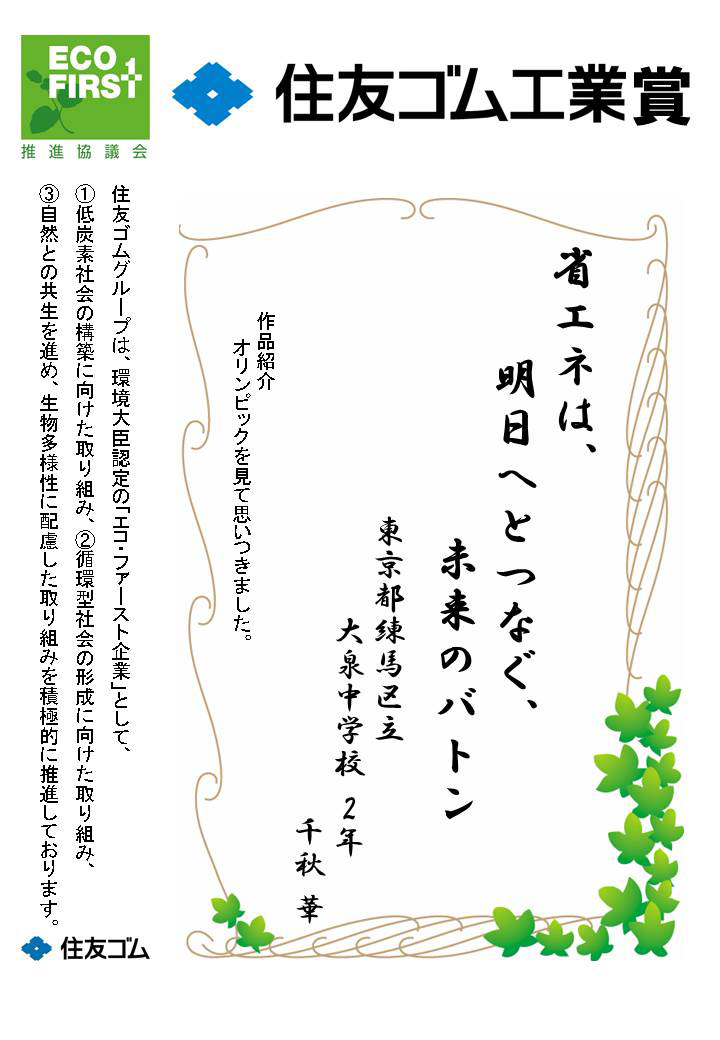 ECO
FIRST
推進協議会
住友ゴム工業賞
省エネは、
明日へとつなぐ、
未来のバトン
東京都練馬区立
大泉中学校 2年
千秋 華
作品紹介
オリンピックを見て思いつきました。
住友ゴムグループは、環境大臣認定の「エコ・ファースト企業」として、
①低炭素社会の構築に向けた取り組み、②循環型社会の形成に向けた取り組み、
③自然との共生を進め、生物多様性に配慮した取り組みを積極的に推進しております。
住友ゴム